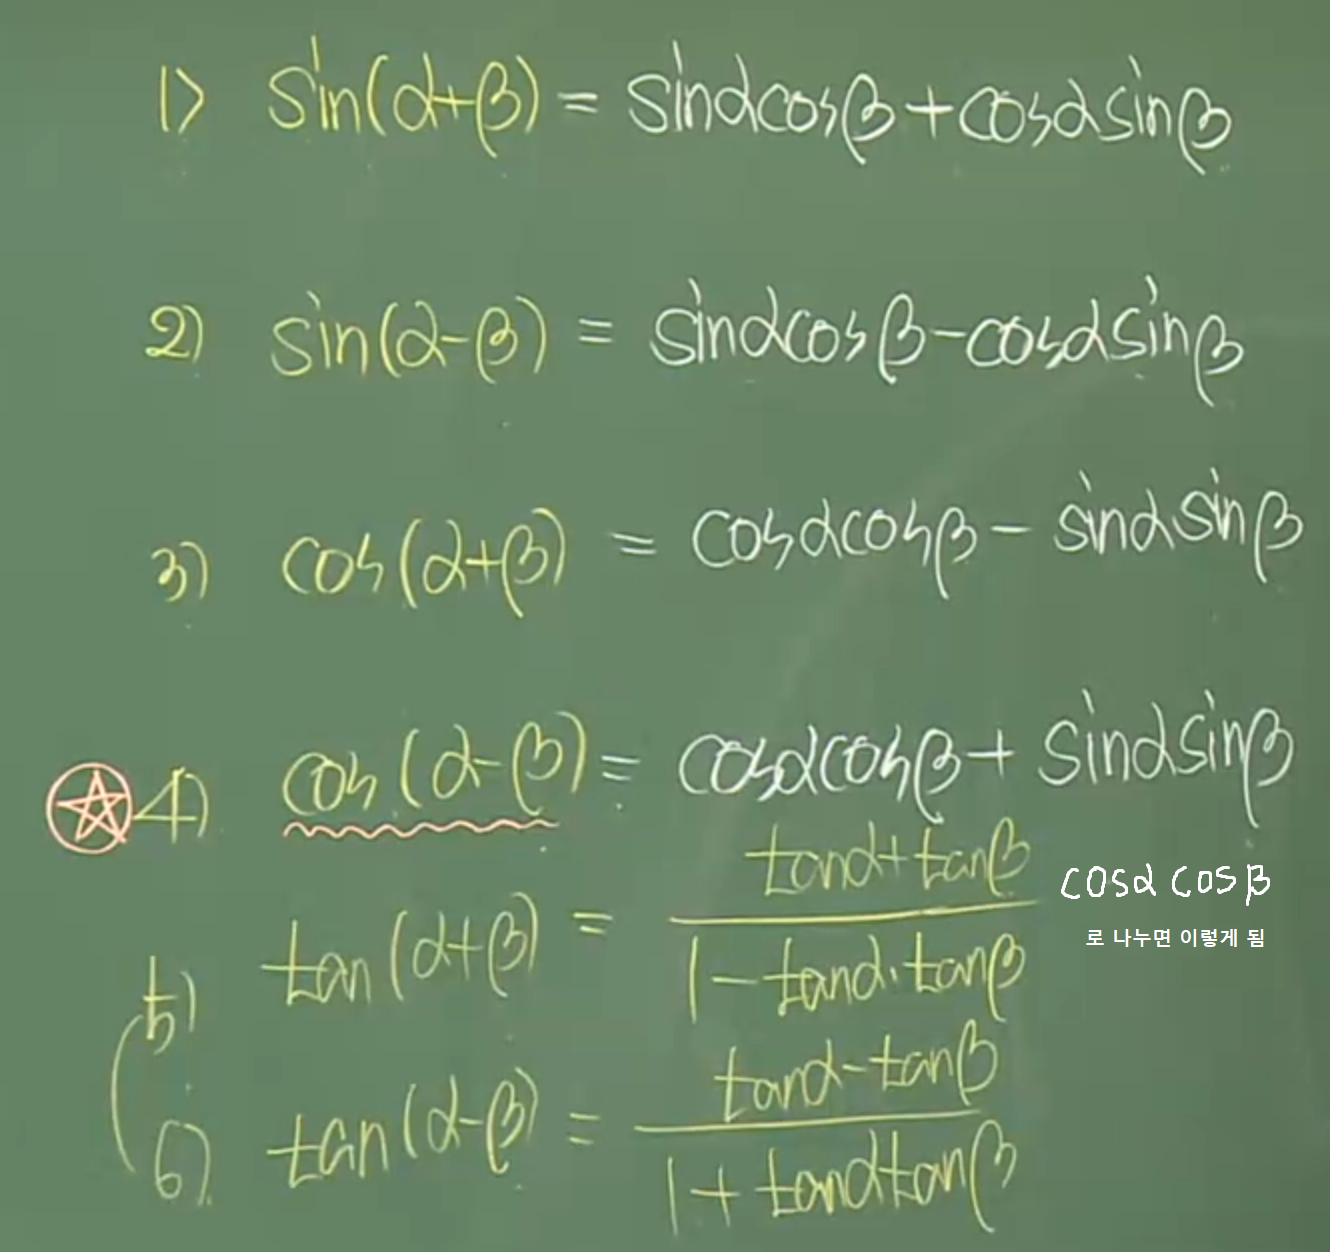 1) sin(α+β) = sinαcosβ+cosαsinβ
2) sin(α-β) = sinαcosβ-cosαsinβ
3) cos(α+β) = cosαcosβ - sinαsinβ
4) cos(α-β) = cosαcosβ + sinαsinβ
tanα+tanβ
cosα cosβ
5) tan(α+β) =
로 나누면 이렇게 됨
1-tanα·tanβ
tanα-tanβ
6) tan(α-β) =
1+tanαtanβ